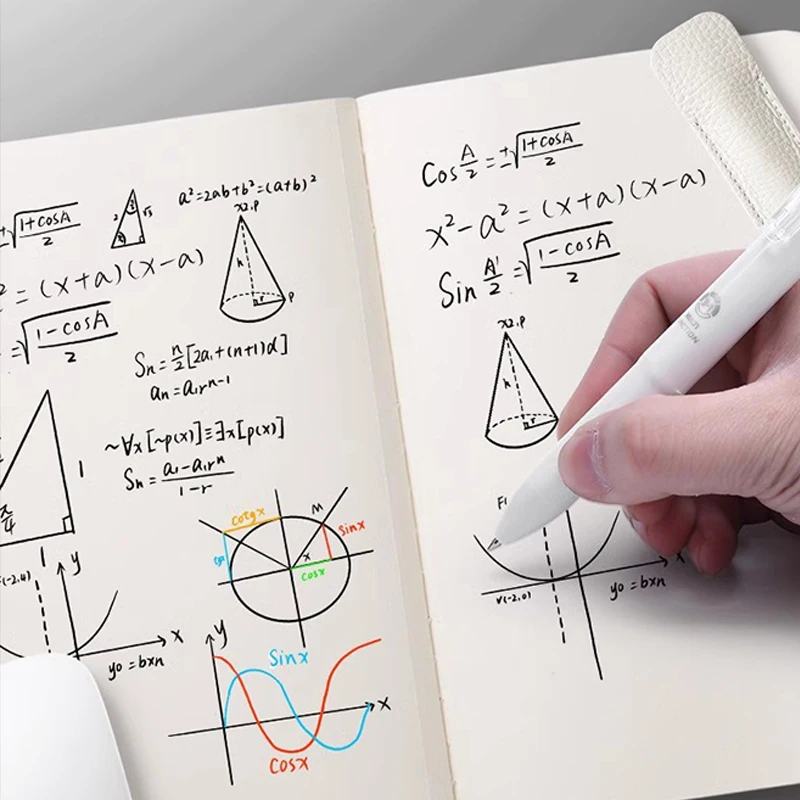 ±√(1+cosA)/2
2 √3
a²=2ab+b²=(a+b)²
x2.p
h
r
p
² = (x+a)(x-a)
=√(1-cosA)/2
Sn=n/2[2a₁+(n+1)d]
an=a₁rn-1
~∀x[~p(x)]≡∃x[p(x)]
Sn=a₁-a₁rⁿ/1-r
1
π/4
1
(-2,4)
y
x
y0=bxn
cotgx
M
sinx
x
cosx
y
Sinx
x
Cosx
Cos A/2=±√(1+cosA)/2
x²-a²=(x+a)(x-a)
Sin A/2=√(1-cosA)/2
x2.p
h
r
F1
x
V(-2,0)
y0=bxn